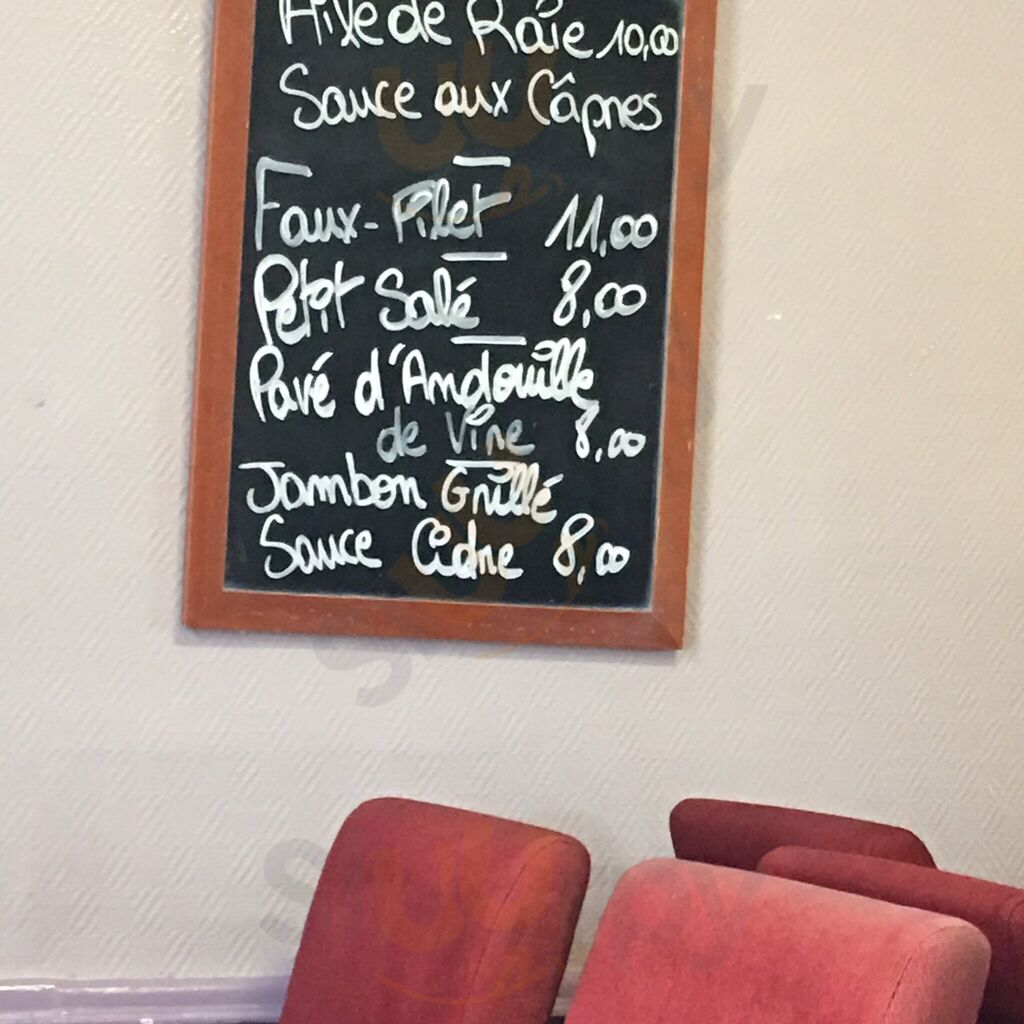 Aile de Raie 10,00
Sauce aux Câpres
Faux-Filet 11,00
Petit Salé 8,00
Pavé d'Andouille
de Vire 8,00
Jambon Grillé
Sauce Cidre 8,00